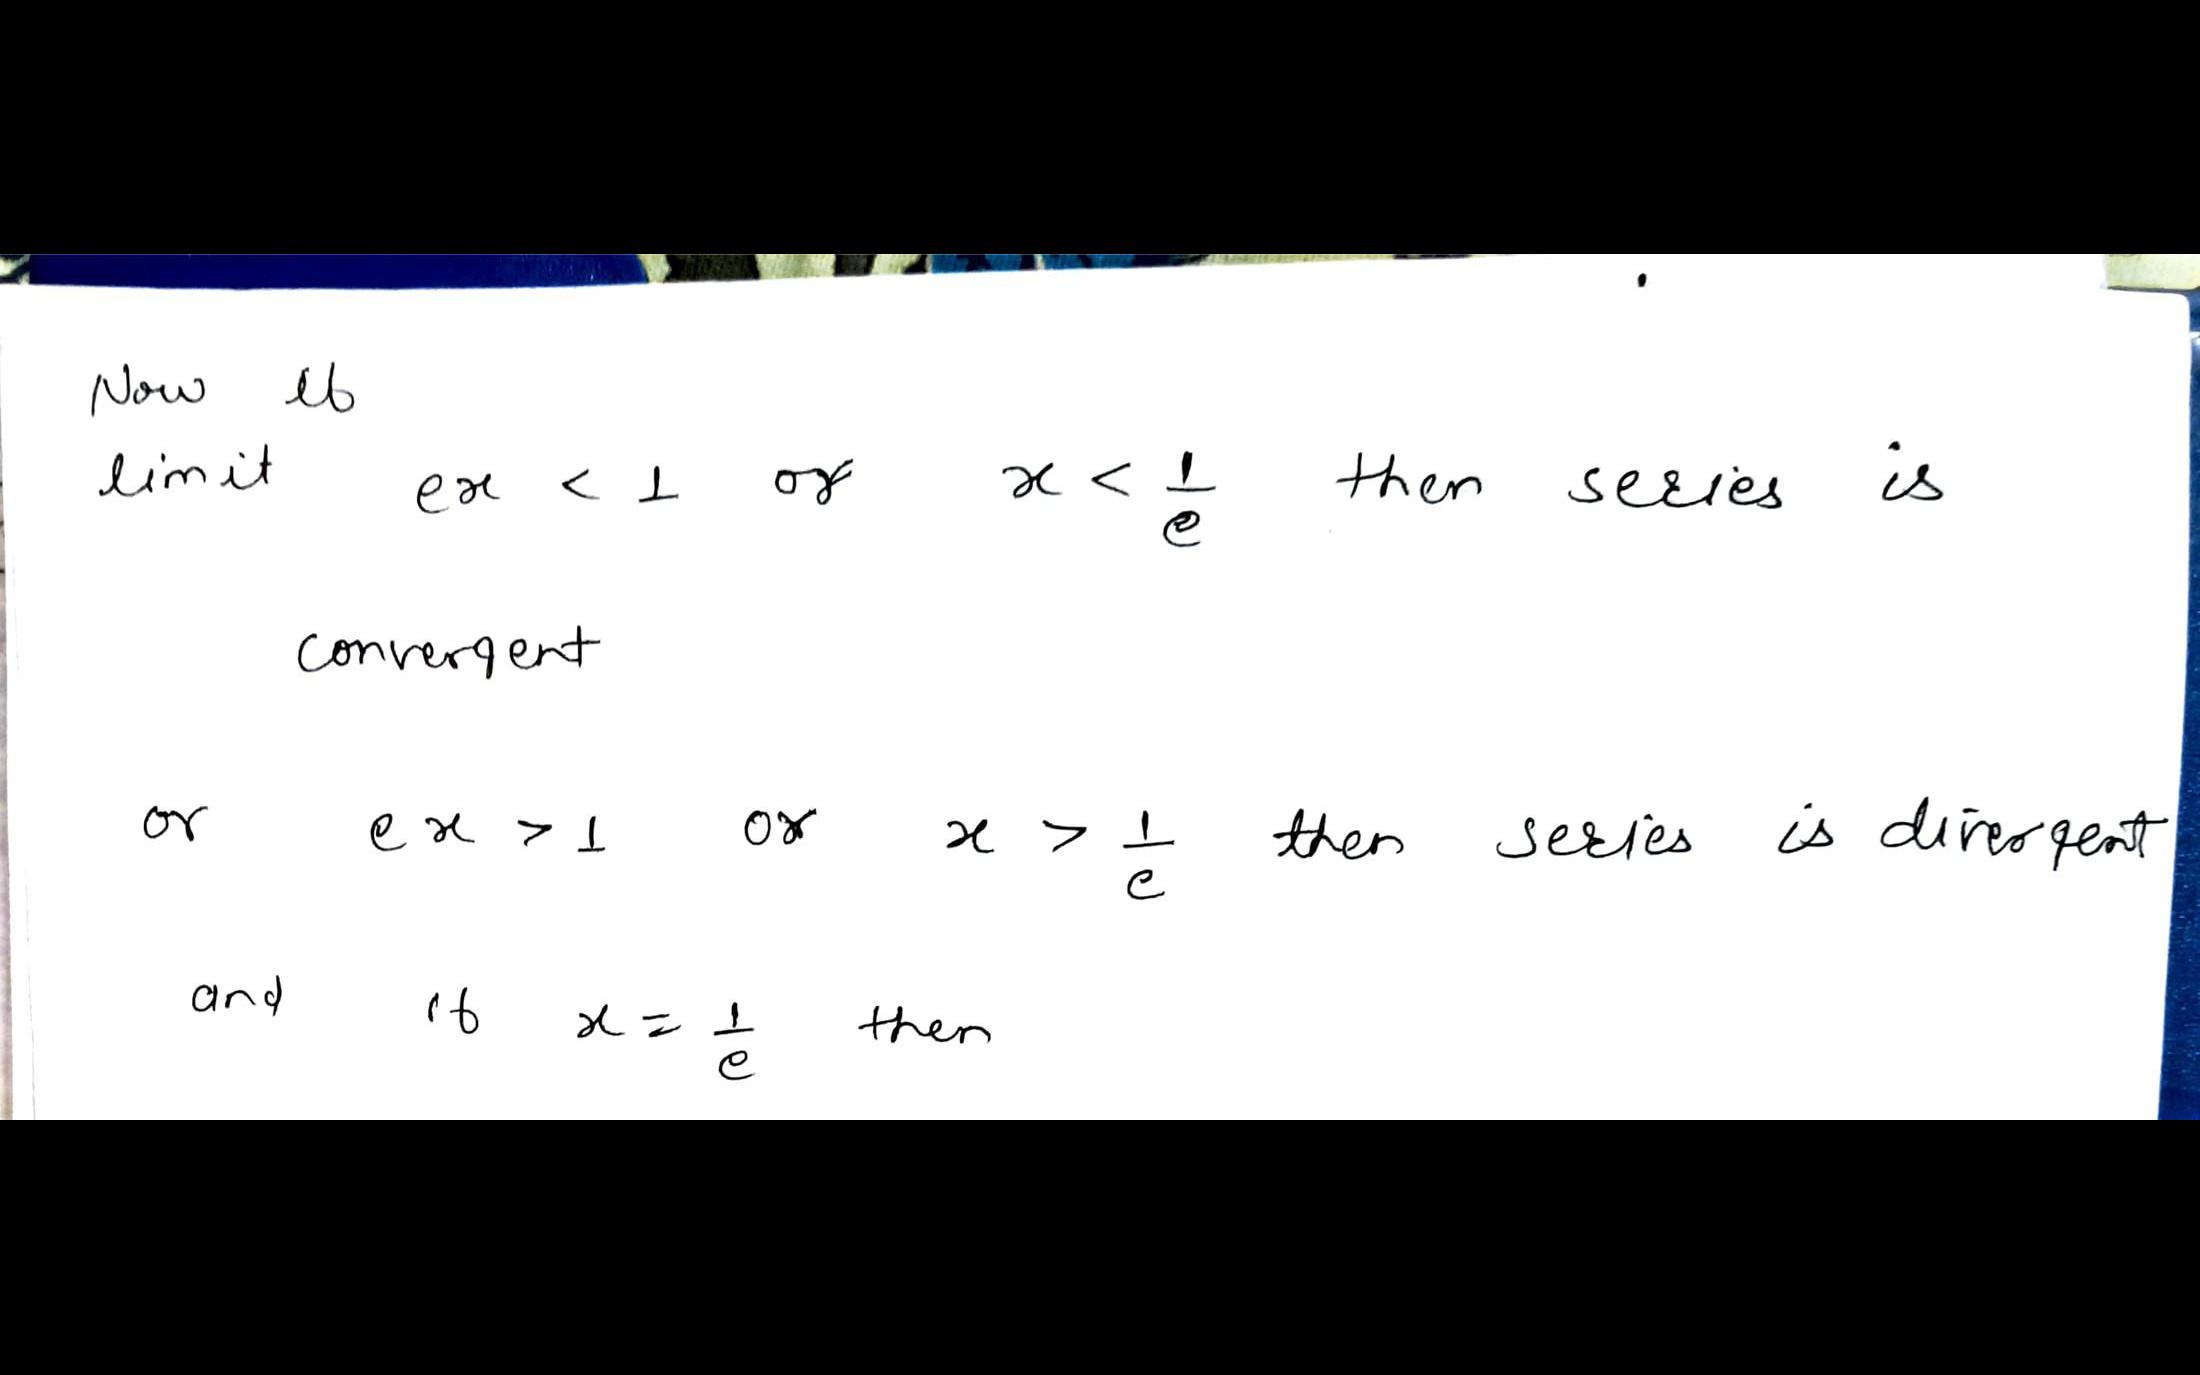 Now if
limit ex < 1 or x < 1/e then series is
convergent
or ex > 1 or x > 1/e then series is divergent
and if x = 1/e then